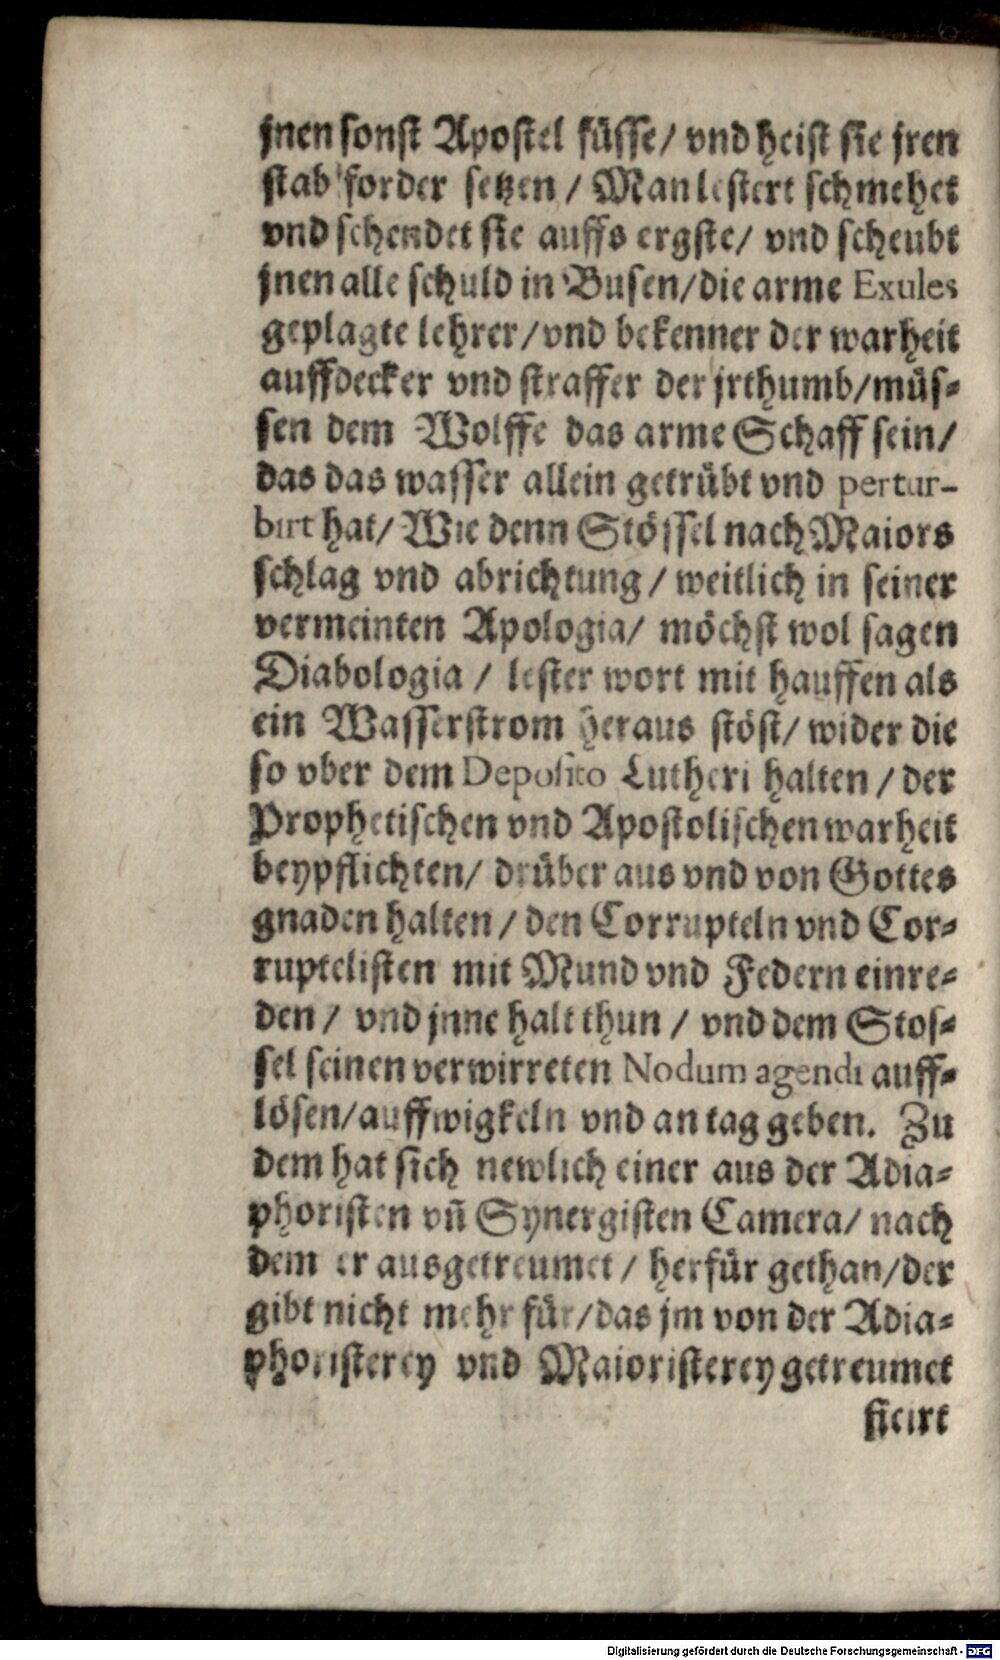 jnen sonst Apostel füsse/ vnd heist sie jren
stab forder setzen / Man lestert schmehet
vnd schendet sie auffs ergste/ vnd scheubt
jnen alle schuld in Busen/die arme Exules
geplagte lehrer/vnd bekenner der warheit
auffdecker vnd straffer der jrthumb/müs-
sen dem Wolffe das arme Schaff sein/
das das wasser allein getrübt vnd pertur-
birt hat/ Wie denn Stössel nach Maiors
schlag vnd abrichtung / weitlich in seiner
vermeinten Apologia/ möchst wol sagen
Diabologia / lester wort mit hauffen als
ein Wasserstrom heraus stöst/ wider die
so vber dem Deposito Lutheri halten / der
Prophetischen vnd Apostolischen warheit
beypflichten/ drüber aus vnd von Gottes
gnaden halten / den Corrupteln vnd Cor-
ruptelisten mit Mund vnd Federn einre-
den / vnd jnne halt thun / vnd dem Stos-
sel seinen verwirreten Nodum agendi auff-
lösen/auffwigkeln vnd an tag geben. Zu
dem hat sich newlich einer aus der Adia-
phoristen vñ Synergisten Camera/ nach
dem er ausgetreumet / herfür gethan/der
gibt nicht mehr für/das jm von der Adia-
phoristerey vnd Maioristerey getreumet
Digitalisierung gefördert durch die Deutsche Forschungsgemeinschaft - DFG